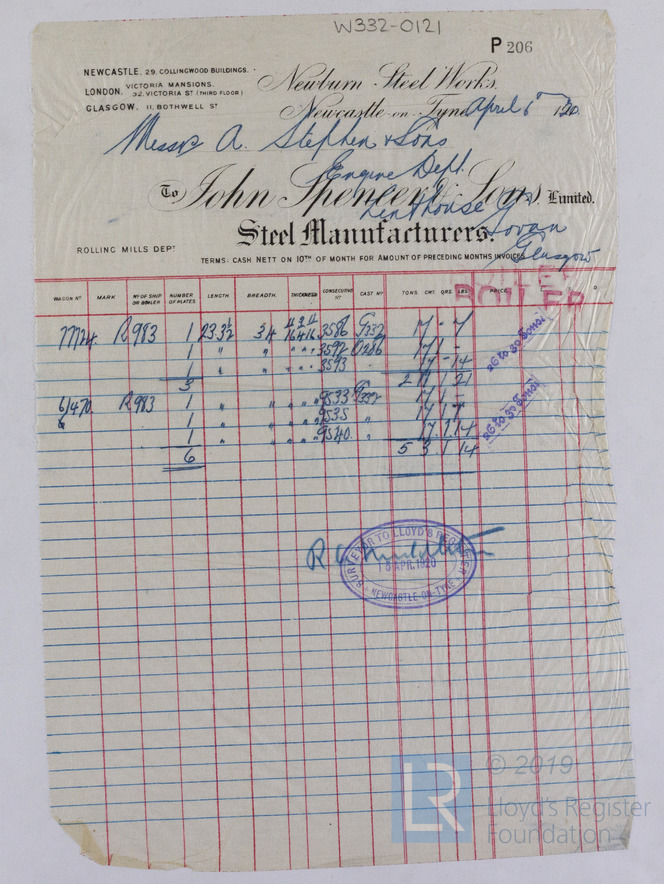 W332-0121
P 206
NEWCASTLE. 29. COLLINGWOOD BUILDINGS.
LONDON. VICTORIA MANSIONS.
32. VICTORIA ST (THIRD FLOOR)
GLASGOW. 11. BOTHWELL ST
Newburn Steel Works.
Newcastle-on-Tyne April 6th 1920.
Messrs A. Stephen & Sons
Engine Dept.
To John Spencer & Sons Limited.
Linthouse
Govan
Steel Manufacturers.
Glasgow
ROLLING MILLS DEPT
TERMS: CASH NETT ON 10TH OF MONTH FOR AMOUNT OF PRECEDING MONTHS INVOICES
BOILER
WAGON NO MARK NO OF SHIP OR BOILER NUMBER OF PLATES. LENGTH. BREADTH. THICKNESS CONSECUTIVE NO CAST NO TONS. CWT. QRS. LBS. PRICE.
R983 1 23 3½ 3586 G232 17 - 7
1 " " " " " 3592 17 1 -
1 " " " " " 3593 17 - 14
3 2 11 1 21
6/470 R983 1 " " " " " 9533 G232 17 1 -
1 " " " " " 9535 " 17 1
1 " " " " " 9540 " 17 1 14
6 5 3 1 14
26 to 30 Tons
26 to 30 Tons
SURVEYOR TO LLOYD'S REGISTER
APR. 1920
NEWCASTLE-ON-TYNE
LR
© 2019
Lloyd's Register
Foundation